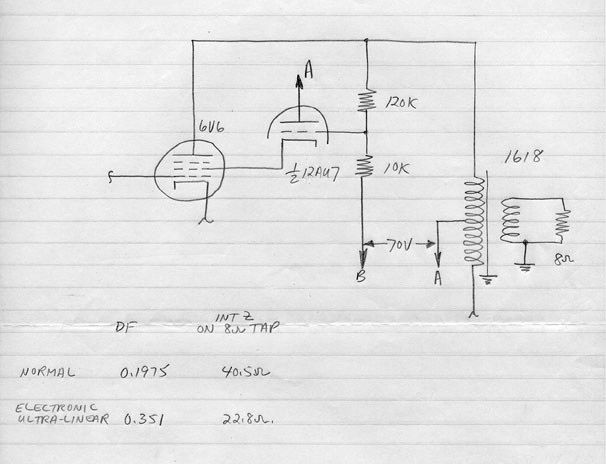 A
6V6
120K
½ 12AU7
10K
1618
70V
8Ω
B
A
DF
INT Z
ON 8Ω TAP
NORMAL 0.1975 40.5Ω
ELECTRONIC
ULTRA-LINEAR 0.351 22.8Ω.